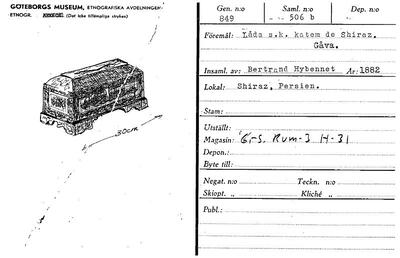 GÖTEBORGS MUSEUM, ETNOGRAFISKA AVDELNINGEN
ETNOGR. (Det icke tillämpliga strykes)
30cm
Gen. n:o
849
Saml. n:o
506 b
Dep. n:o
Föremål: Låda s.k. katem de Shiraz.
Gåva.
Insaml. av: Bertrand Hybennet År:1882
Lokal: Shiraz, Persien.
Stam:
Utställt:
Magasin: G.S. Rum-3 H-31
Depon.:
Byte till:
Negat. n:o
Teckn. n:o
Skiopt. „
Kliché „
Publ.: